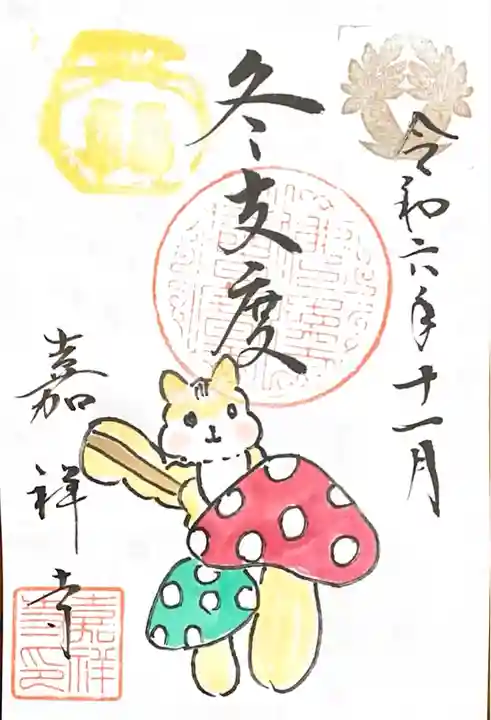 令和六年十一月
冬支度
嘉祥寺
嘉祥
寺印